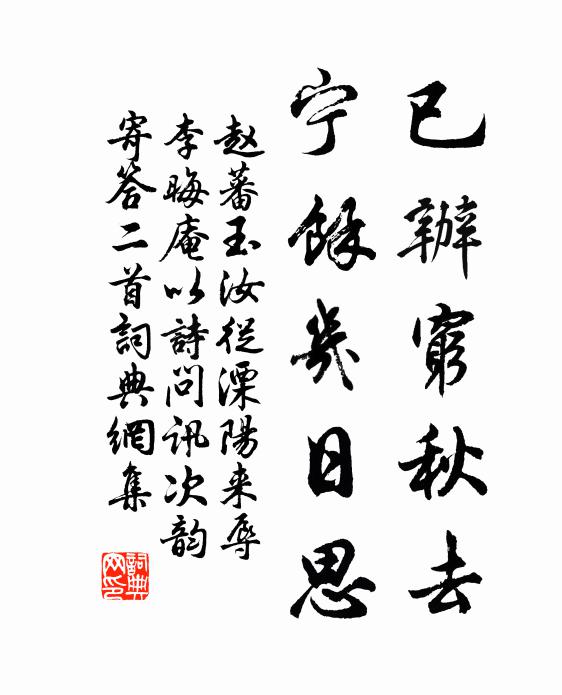 已辦窮秋去
宁餘幾日思
赵蕃玉汝從溧陽来辱
李晦庵以詩問訊次韵
寄答二首詞典網集
詞典網印